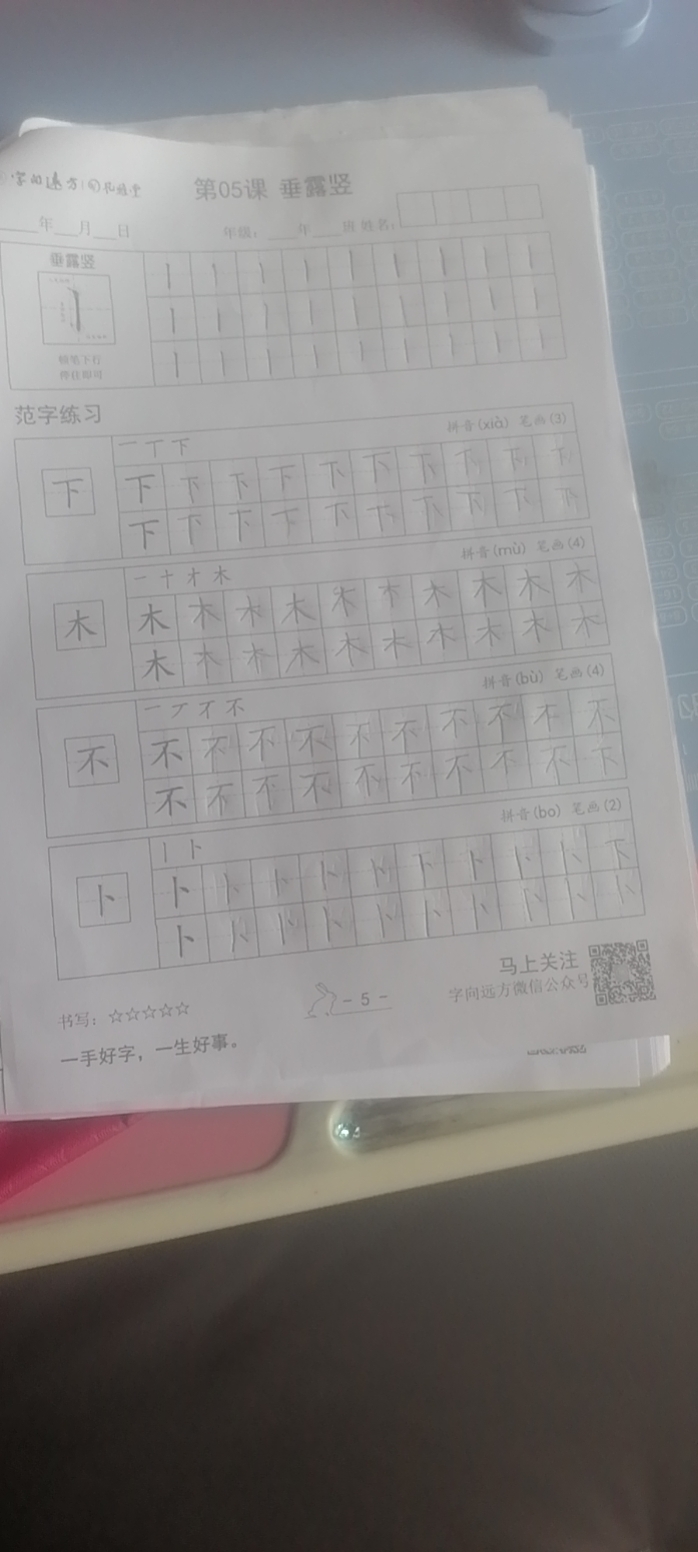 字向远方
第05课 垂露竖
年 月 日
年级： 年 班 姓名：
垂露竖
顿笔下行
停住即可
范字练习
拼音(xià) 笔画(3)
一 丅 下
下 下 下 下 下 下 下 下 下 下 下
下 下 下 下 下 下 下 下 下 下
拼音(mù) 笔画(4)
一 十 才 木
木 木 木 木 木 木 木 木 木 木 木
木 木 木 木 木 木 木 木 木 木
拼音(bù) 笔画(4)
一 丆 不
不 不 不 不 不 不 不 不 不 不 不
不 不 不 不 不 不 不 不 不 不
拼音(bo) 笔画(2)
丨 卜
卜 卜 卜 卜 卜 卜 下 卜 卜 卜 下
卜 卜 卜 卜 卜 卜 卜 卜 卜 卜
马上关注
字向远方微信公众号
书写：☆☆☆☆☆
- 5 -
一手好字，一生好事。